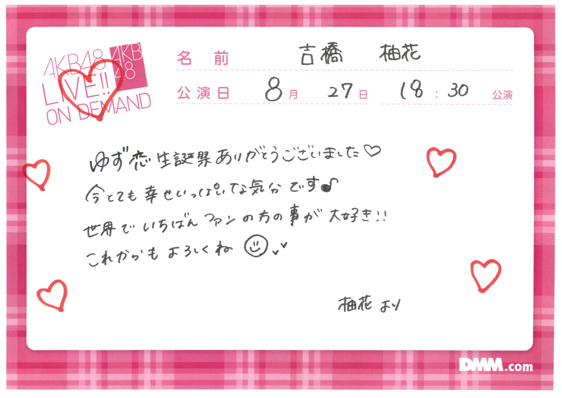 AKB48
LIVE!!
ON DEMAND
AKB
48
名前 吉橋 柚花
公演日 8月 27日 18:30 公演
ゆず恋生誕祭ありがとうございました♡
今とても幸せいっぱいな気分です♪
世界でいちばんファンの方の事が大好き!!
これからもよろしくね
柚花より
DMM.com